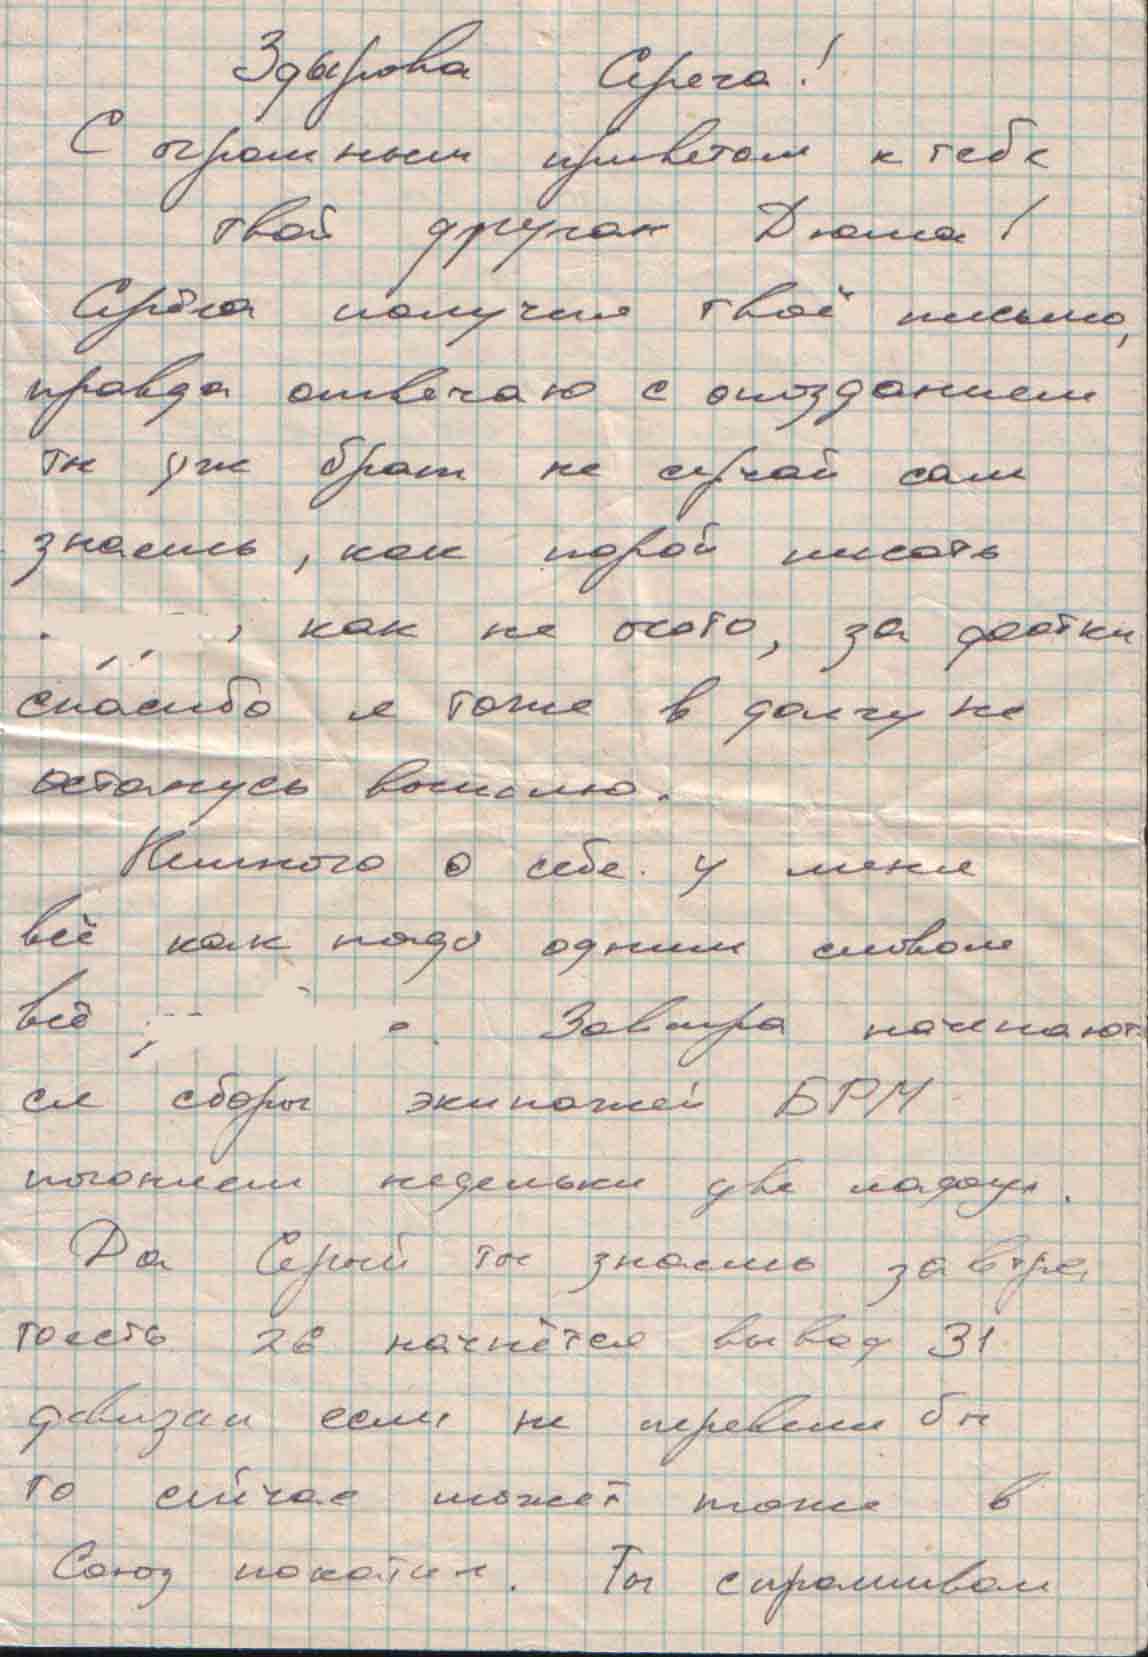 Здырова Серега!
С огромным приветом к тебе
твой дружок Дюша!
Серёга получил твоё письмо,
правда отвечаю с опозданием
ты уж брат не серчай сам
знаешь, как порой писать
, как не охото, за фотки
спасибо я тоже в долгу не
останусь вышлю.
Немного о себе. У меня
всё как надо одним словом
всё . Завтра начинают
ся сборы экипажей БРМ
погоняем недельки две
Да Серый ты знаешь завтра
тоесть 26 начнётся вывод 31
дивизии если не перевели бы
то сейчас может тоже в
Союз покатил. Ты спрашивал